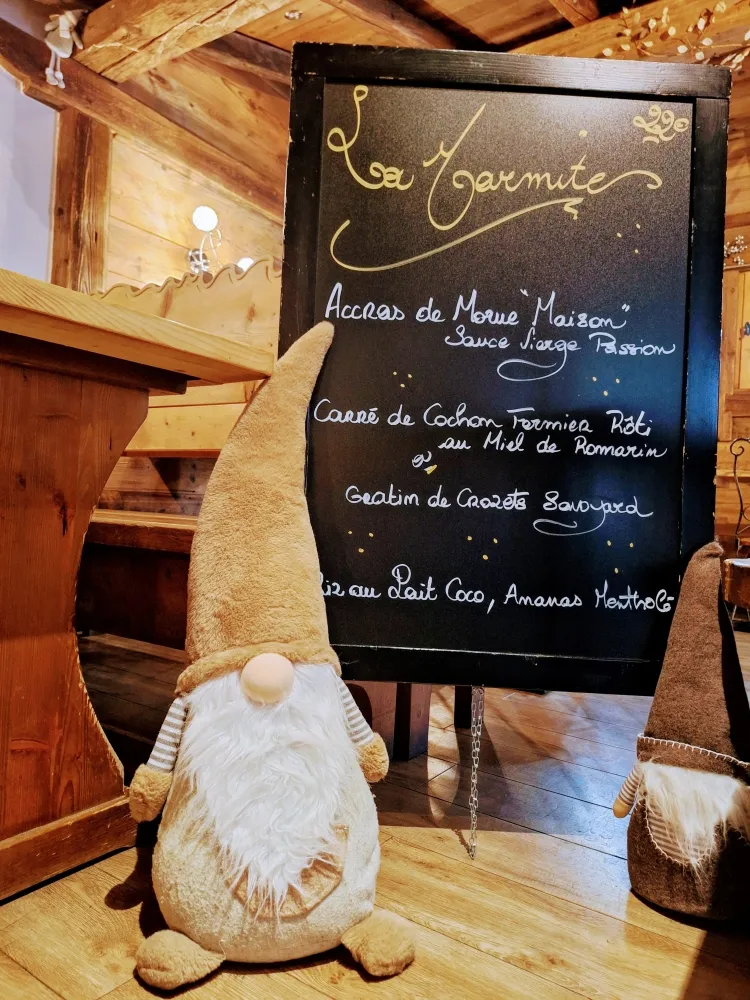 La Marmite
Accras de Morue "Maison"
Sauce Vierge Passion
Carré de Cochon Fermier Rôti
au Miel de Romarin
Gratin de Crozets Savoyard
Riz au Lait Coco, Ananas Mentholé